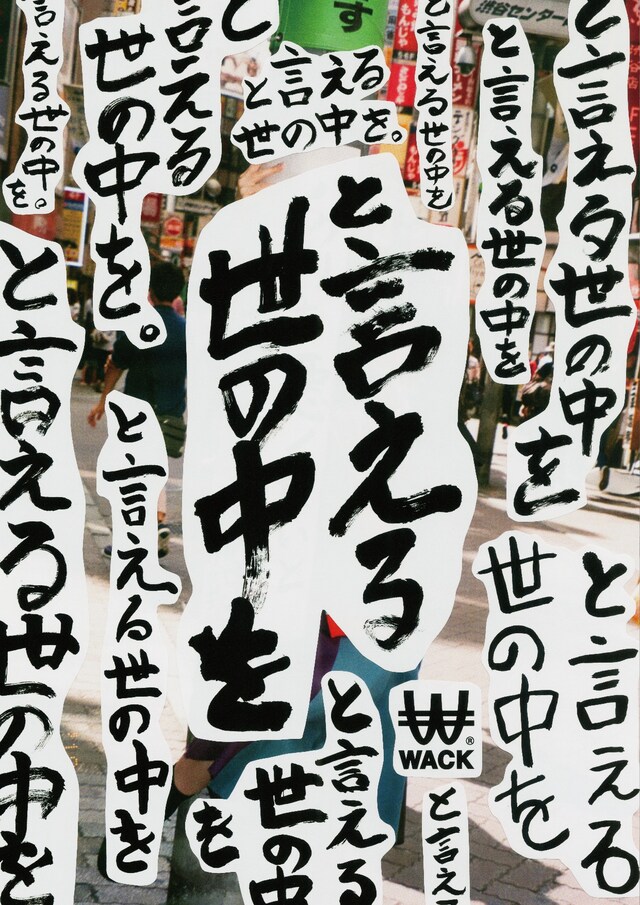 言える世の中
を。
言える
世の中を。
と
す
と言える
世の中を。
と言える世の中を
渋谷センター
もんじゃ
と言える世の中を
と言える世の中
を
と言える
世の中を
と言える世の中を
と言える世の中を
と言える
世の中を
と言える
世の中
を
WACK®
と言え